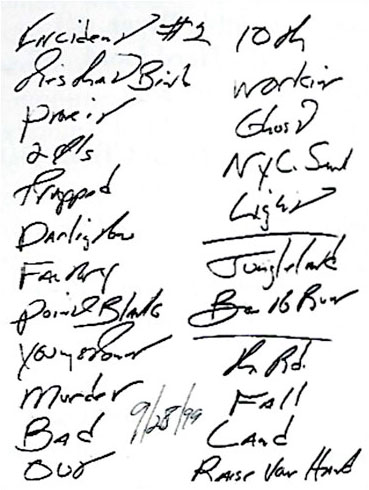 Incident #2
Ties that Bind
Prove it
2
Trapped
Darlington
Factory
Point Blank
Youngstown
Murder
Bad
Out
9/28/99
10th
Workin
Ghost
NYC.
Light
Jungleland
Born to Run
Th Rd.
Fall
Land
Raise Your Hand